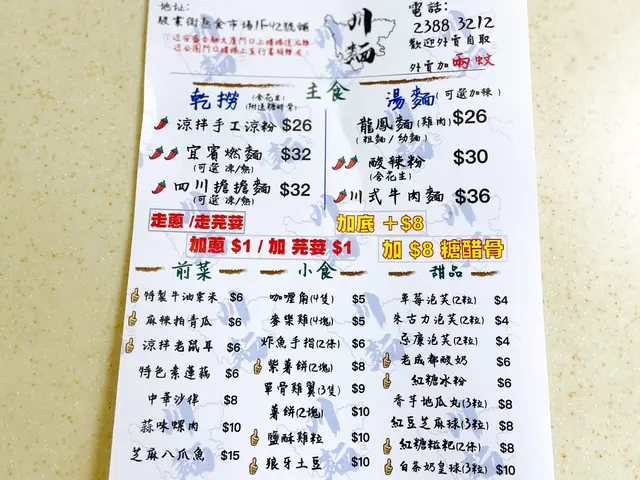 地址:
駿業街熟食市場1F42號舖
川麵
電話:
2388 3212
歡迎外賣自取
外賣加兩蚊
主食
乾撈
(含花生)
(附送糖醋骨)
涼拌手工涼粉 $26
宜賓燃麵 $32
(可選 凍/熱)
四川擔擔麵 $32
(可選 凍/熱)
湯麵(可選加辣)
龍鳳麵(雞肉) $26
(粗麵/幼麵)
酸辣粉 $30
(含花生)
川式牛肉麵 $36
走蔥/走芫荽
加底 +$8
加蔥 $1 / 加 芫荽 $1
加 $8 糖醋骨
前菜
特製牛油粟米 $6
麻辣拍青瓜 $6
涼拌老鼠耳 $6
特色素蓮藕 $6
中華沙律 $8
蒜味螺肉 $10
芝麻八爪魚 $15
小食
咖喱角(4隻) $5
麥樂雞(4塊) $5
炸魚手指(2條) $6
紫薯餅(2塊) $8
單骨雞翼(3隻) $9
薯餅(2塊) $10
鹽酥雞粒 $10
狼牙土豆 $10
甜品
草莓泡芙(2粒) $4
朱古力泡芙(2粒) $4
原味泡芙(2粒) $4
老成都酸奶 $6
紅糖冰粉 $6
香芋地瓜丸(3粒) $8
紅豆芝麻球(3粒) $8
紅糖糍粑(2條) $8
白茶奶皇球(3粒) $10